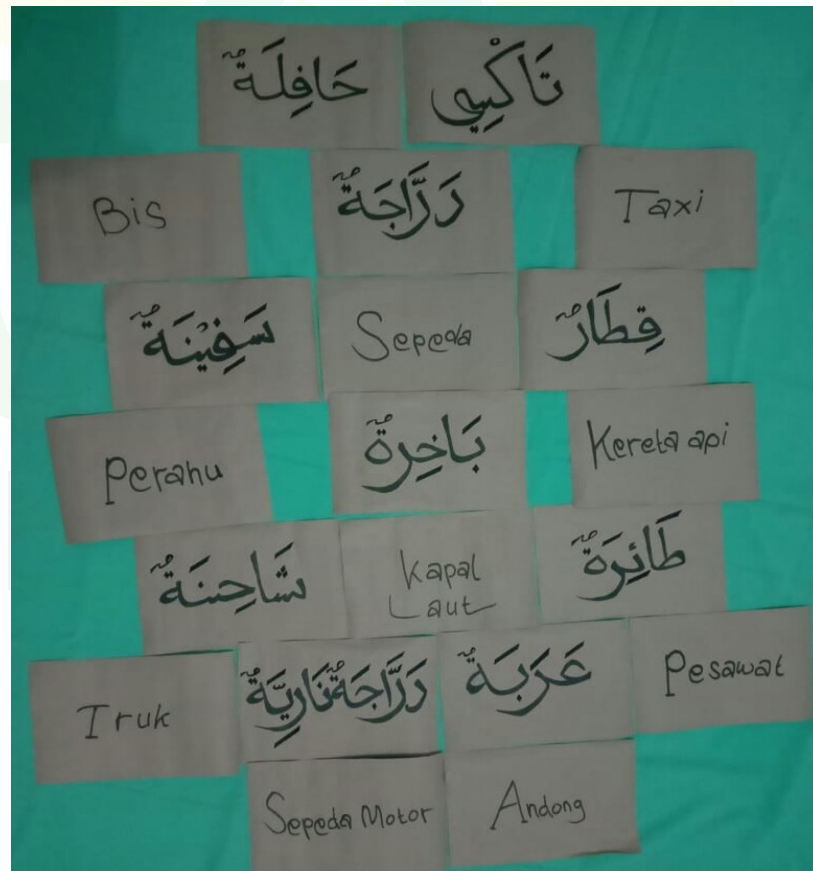 حَافِلَةٌ
تَاكْسِي
Bis
دَرَّاجَةٌ
Taxi
سَفِيْنَةٌ
Sepeda
قِطَارٌ
Perahu
بَاخِرَةٌ
Kereta api
شَاحِنَةٌ
Kapal
Laut
طَائِرَةٌ
Truk
دَرَّاجَةٌ نَارِيَّةٌ
عَرَبَةٌ
Pesawat
Sepeda Motor
Andong